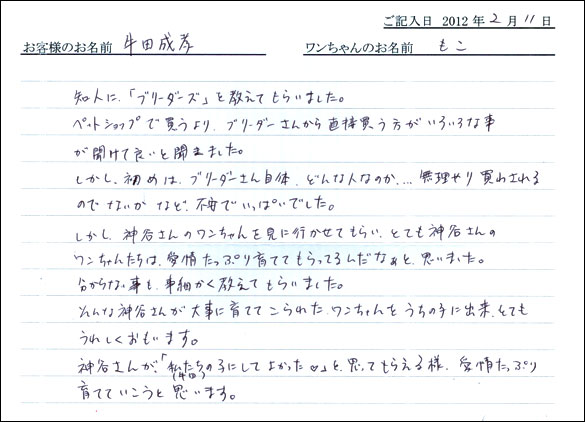 ご記入日 2012年 2月 11日
お客様のお名前 牛田成孝 ワンちゃんのお名前 もこ
知人に、「ブリーダーズ」を教えてもらいました。
ペットショップで買うより、ブリーダーさんから直接買う方がいろいろな事
が聞けて良いと聞きました。
しかし、初めは、ブリーダーさん自体、どんな人なのか、… 無理やり買わされる
のでないかなど、不安でいっぱいでした。
しかし、神谷さんのワンちゃんを見に行かせてもらい、とても神谷さんの
ワンちゃんたちは、愛情たっぷり育ててもらってるんだなぁと、思いました。
分からない事も、事細かく教えてもらいました。
そんな神谷さんが大事に育ててこられた、ワンちゃんをうちの子に出来、とても
うれしくおもいます。
神谷さんが、「私たちの子にしてよかった♡」と、思ってもらえる様、愛情たっぷり
(牛田)
育てていこうと思います。